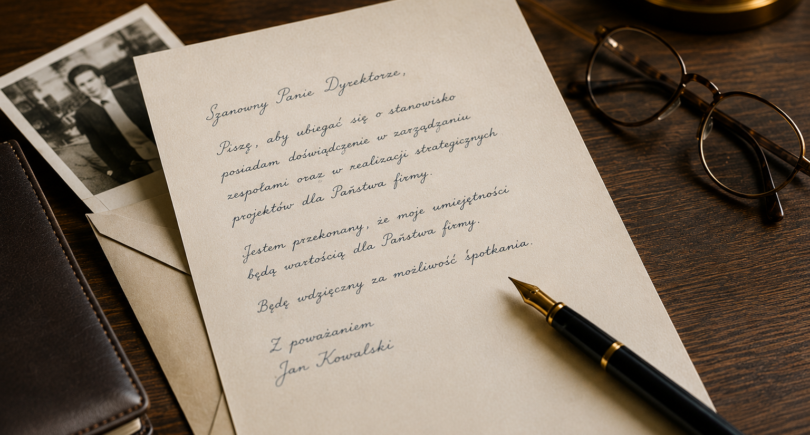 Szanowny Panie Dyrektorze,
Piszę, aby ubiegać się o stanowisko
posiadam doświadczenie w zarządzaniu
zespołami oraz w realizacji strategicznych
projektów dla Państwa firmy.
Jestem przekonany, że moje umiejętności
będą wartością dla Państwa firmy.
Będę wdzięczny za możliwość śpotkania.
Z poważaniem
Jan Kowalski